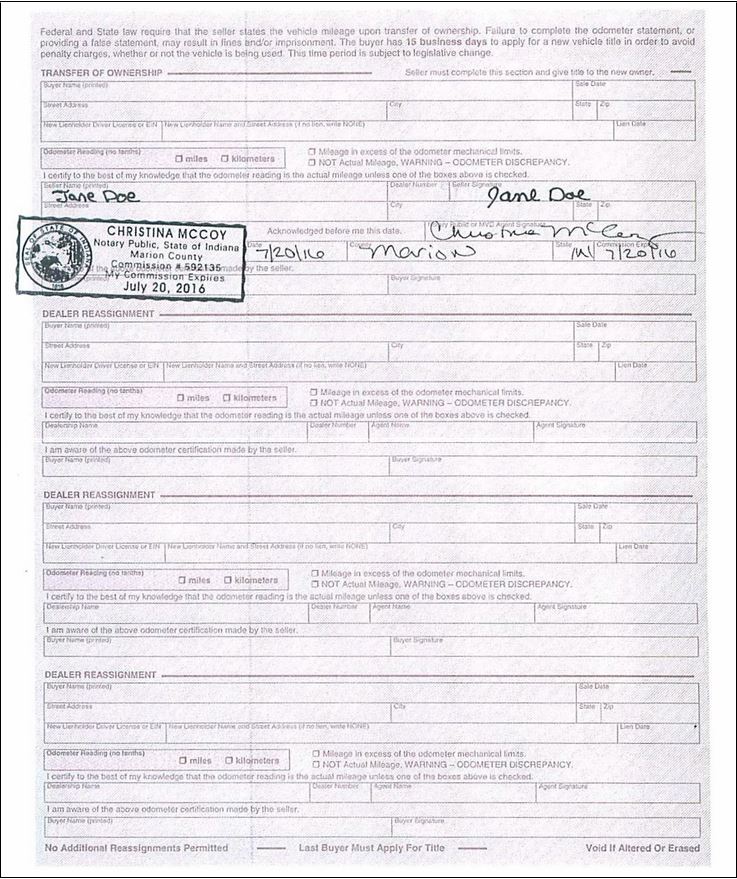 Federal and State law require that the seller states the vehicle mileage upon transfer of ownership. Failure to complete the odometer statement, or
providing a false statement, may result in fines and/or imprisonment. The buyer has 15 business days to apply for a new vehicle title in order to avoid
penalty charges, whether or not the vehicle is being used. This time period is subject to legislative change.
TRANSFER OF OWNERSHIP Seller must complete this section and give title to the new owner.
Buyer Name (printed) Sale Date
Street Address City State Zip
New Lienholder Driver License or EIN New Lienholder Name and Street Address (if no lien, write NONE) Lien Date
Odometer Reading (no tenths) miles kilometers Mileage in excess of the odometer mechanical limits.
NOT Actual Mileage, WARNING – ODOMETER DISCREPANCY.
I certify to the best of my knowledge that the odometer reading is the actual mileage unless one of the boxes above is checked.
Seller Name (printed) Dealer Number Seller Signature
Jane Doe Jane Doe
Street Address City State Zip
CHRISTINA MCCOY
Notary Public, State of Indiana
Marion County
Commission # 592135
My Commission Expires
July 20, 2016
Acknowledged before me this date. Notary Public or MVD Agent Signature
Christina McCoy
Date County State Commission Expires
7/20/16 Marion IN 7/20/16
made by the seller.
Buyer Signature
DEALER REASSIGNMENT
Buyer Name (printed) Sale Date
Street Address City State Zip
New Lienholder Driver License or EIN New Lienholder Name and Street Address (if no lien, write NONE) Lien Date
Odometer Reading (no tenths) miles kilometers Mileage in excess of the odometer mechanical limits.
NOT Actual Mileage, WARNING – ODOMETER DISCREPANCY.
I certify to the best of my knowledge that the odometer reading is the actual mileage unless one of the boxes above is checked.
Dealership Name Dealer Number Agent Name Agent Signature
I am aware of the above odometer certification made by the seller.
Buyer Name (printed) Buyer Signature
DEALER REASSIGNMENT
Buyer Name (printed) Sale Date
Street Address City State Zip
New Lienholder Driver License or EIN New Lienholder Name and Street Address (if no lien, write NONE) Lien Date
Odometer Reading (no tenths) miles kilometers Mileage in excess of the odometer mechanical limits.
NOT Actual Mileage, WARNING – ODOMETER DISCREPANCY.
I certify to the best of my knowledge that the odometer reading is the actual mileage unless one of the boxes above is checked.
Dealership Name Dealer Number Agent Name Agent Signature
I am aware of the above odometer certification made by the seller.
Buyer Name (printed) Buyer Signature
DEALER REASSIGNMENT
Buyer Name (printed) Sale Date
Street Address City State Zip
New Lienholder Driver License or EIN New Lienholder Name and Street Address (if no lien, write NONE) Lien Date
Odometer Reading (no tenths) miles kilometers Mileage in excess of the odometer mechanical limits.
NOT Actual Mileage, WARNING – ODOMETER DISCREPANCY.
I certify to the best of my knowledge that the odometer reading is the actual mileage unless one of the boxes above is checked.
Dealership Name Dealer Number Agent Name Agent Signature
I am aware of the above odometer certification made by the seller.
Buyer Name (printed) Buyer Signature
No Additional Reassignments Permitted Last Buyer Must Apply For Title Void If Altered Or Erased